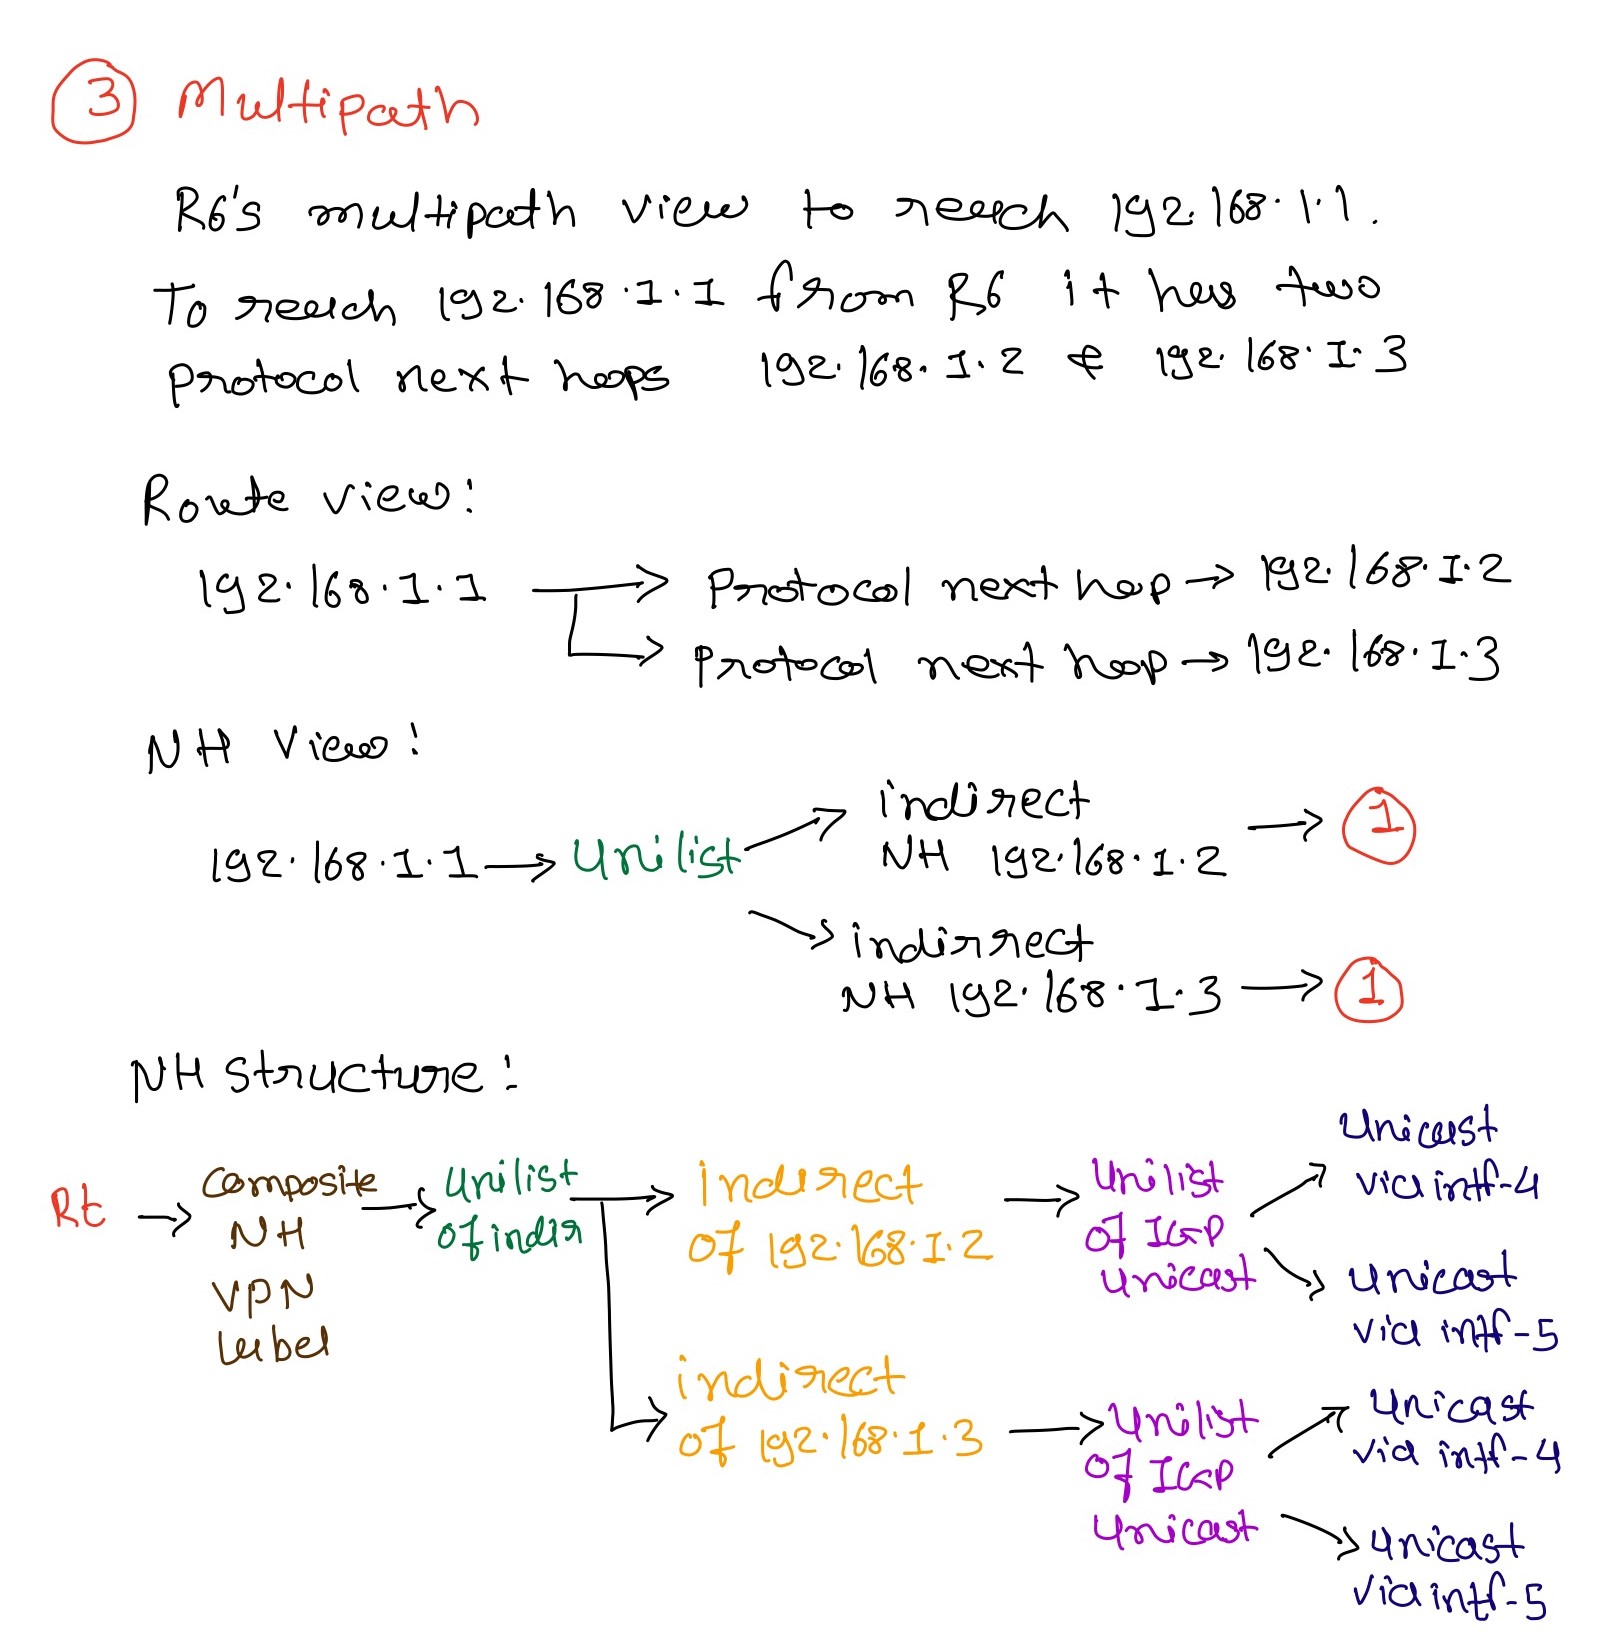 3 Multipath
R6's multipath view to reach 192.168.1.1.
To reach 192.168.1.1 from R6 it has two
protocol next hops 192.168.1.2 & 192.168.1.3
Route view:
192.168.1.1 → Protocol next hop → 192.168.1.2
→ Protocol next hop → 192.168.1.3
NH View:
indirect
NH 192.168.1.2 → 1
192.168.1.1 → Unilist
indirrect
NH 192.168.1.3 → 1
NH Structure:
Rt → Composite
NH
VPN
Label
→ Unilist
of indir
→ Indirect
of 192.168.1.2
→ Unilist
of IGP
unicast
Unicast
via intf-4
Unicast
via intf-5
indirect
of 192.168.1.3
→ Unilist
of IGP
Unicast
Unicast
via intf-4
Unicast
via intf-5